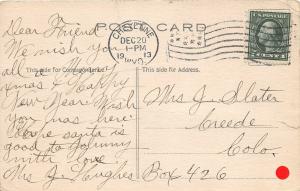 Dear Friend
We wish you
all a Merry
Xmas & Happy
New Year Wish
you was here
hope santa is
good to Johnny
with love
Mrs J. Hughes
POST CARD
This side for Correspondence.
This side for Address.
CHEYENNE
DEC 20
1-PM
1913
WYO.
U.S. POSTAGE
Mrs J Slater
Creede
Colo.
Box 426